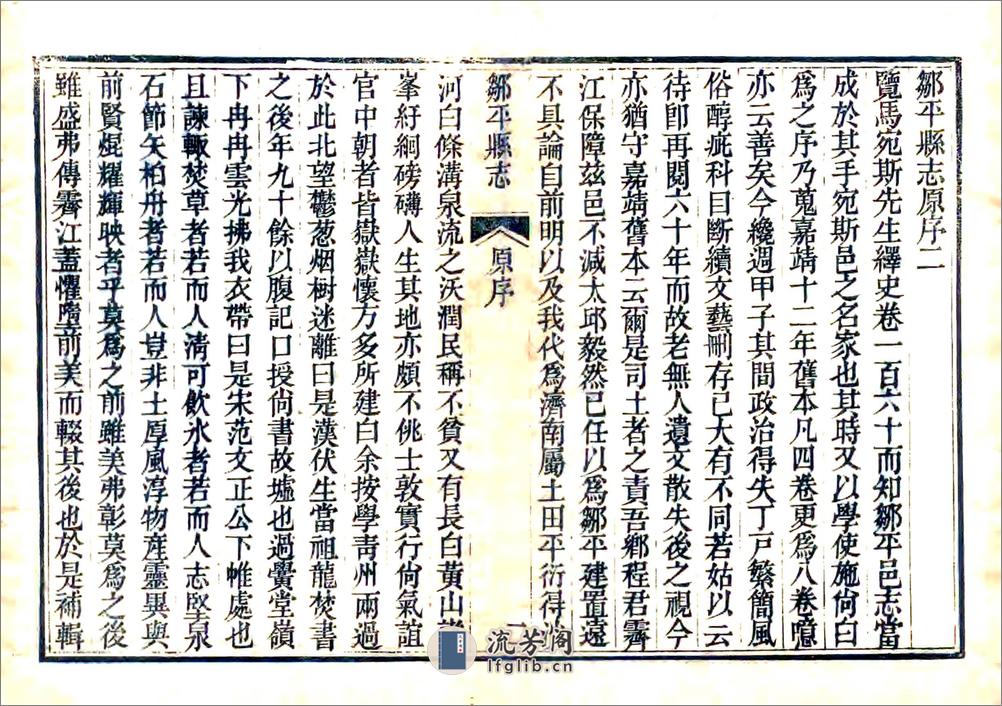 鄒平縣志原序二
覽馬宛斯先生繹史卷一百六十而知鄒平邑志當
成於其手宛斯邑之名家也其時又以學使施尚白
爲之序乃蒐嘉靖十二年舊本凡四卷更爲八卷噫
亦云善矣今纔週甲子其間政治得失丁戸繁簡風
俗醇疵科目斷續文藝刪存已大有不同若姑以云
待即再閱六十年而故老無人遺文散失後之視今
亦猶守嘉靖舊本云爾是司土者之責吾鄉程君霽
江保障兹邑不減太邱毅然已任以爲鄒平建置遠
不具論自前明以及我代爲濟南屬土田平衍得
鄒平縣志
原序
一
河白條溝泉流之沃潤民稱不貧又有長白黃山諸
峯紆綢磅礴人生其地亦頗不佻士敦實行尚氣誼
官中朝者皆嶽嶽懷方多所建白余按學靑州兩過
於此北望鬱葱烟樹迷離曰是漢伏生當祖龍焚書
之後年九十餘以腹記口授尚書故墟也過黌堂嶺
下冉冉雲光拂我衣帶曰是宋范文正公下帷處也
且諫輙焚草者若而人清可飲冰者若而人志堅泉
石節矢柏舟者若而人豈非土厚風淳物産靈異與
前賢焜耀輝映者乎莫爲之前雖美弗彰莫爲之後
雖盛弗傳霽江葢懼隳前美而輟其後也於是補輯
流芳阁
lfglib.cn